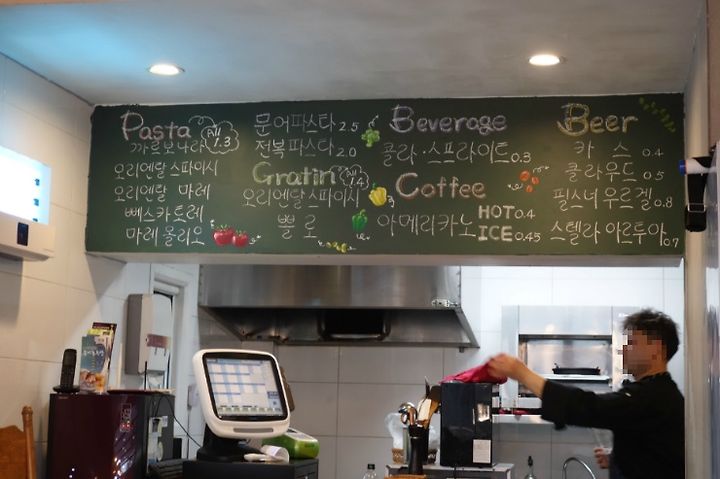 Pasta
All 1.3
까르보나라
오리엔탈 스파이시
오리엔탈 마레
뻬스카토레
마레 올리오
문어파스타 2.5
전복파스타 2.0
Gratin
All 1.4
오리엔탈 스파이시
뽈로
Beverage
콜라·스프라이트 0.3
Coffee
아메리카노 HOT 0.4
ICE 0.45
Beer
카스 0.4
클라우드 0.5
필스너우르겔 0.8
스텔라 아르투아 0.7